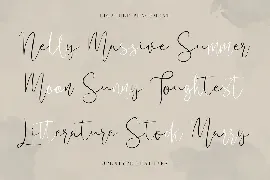 Nelly Massive Summer
Moon Sunny Toughtest
Litterature Stok Marry